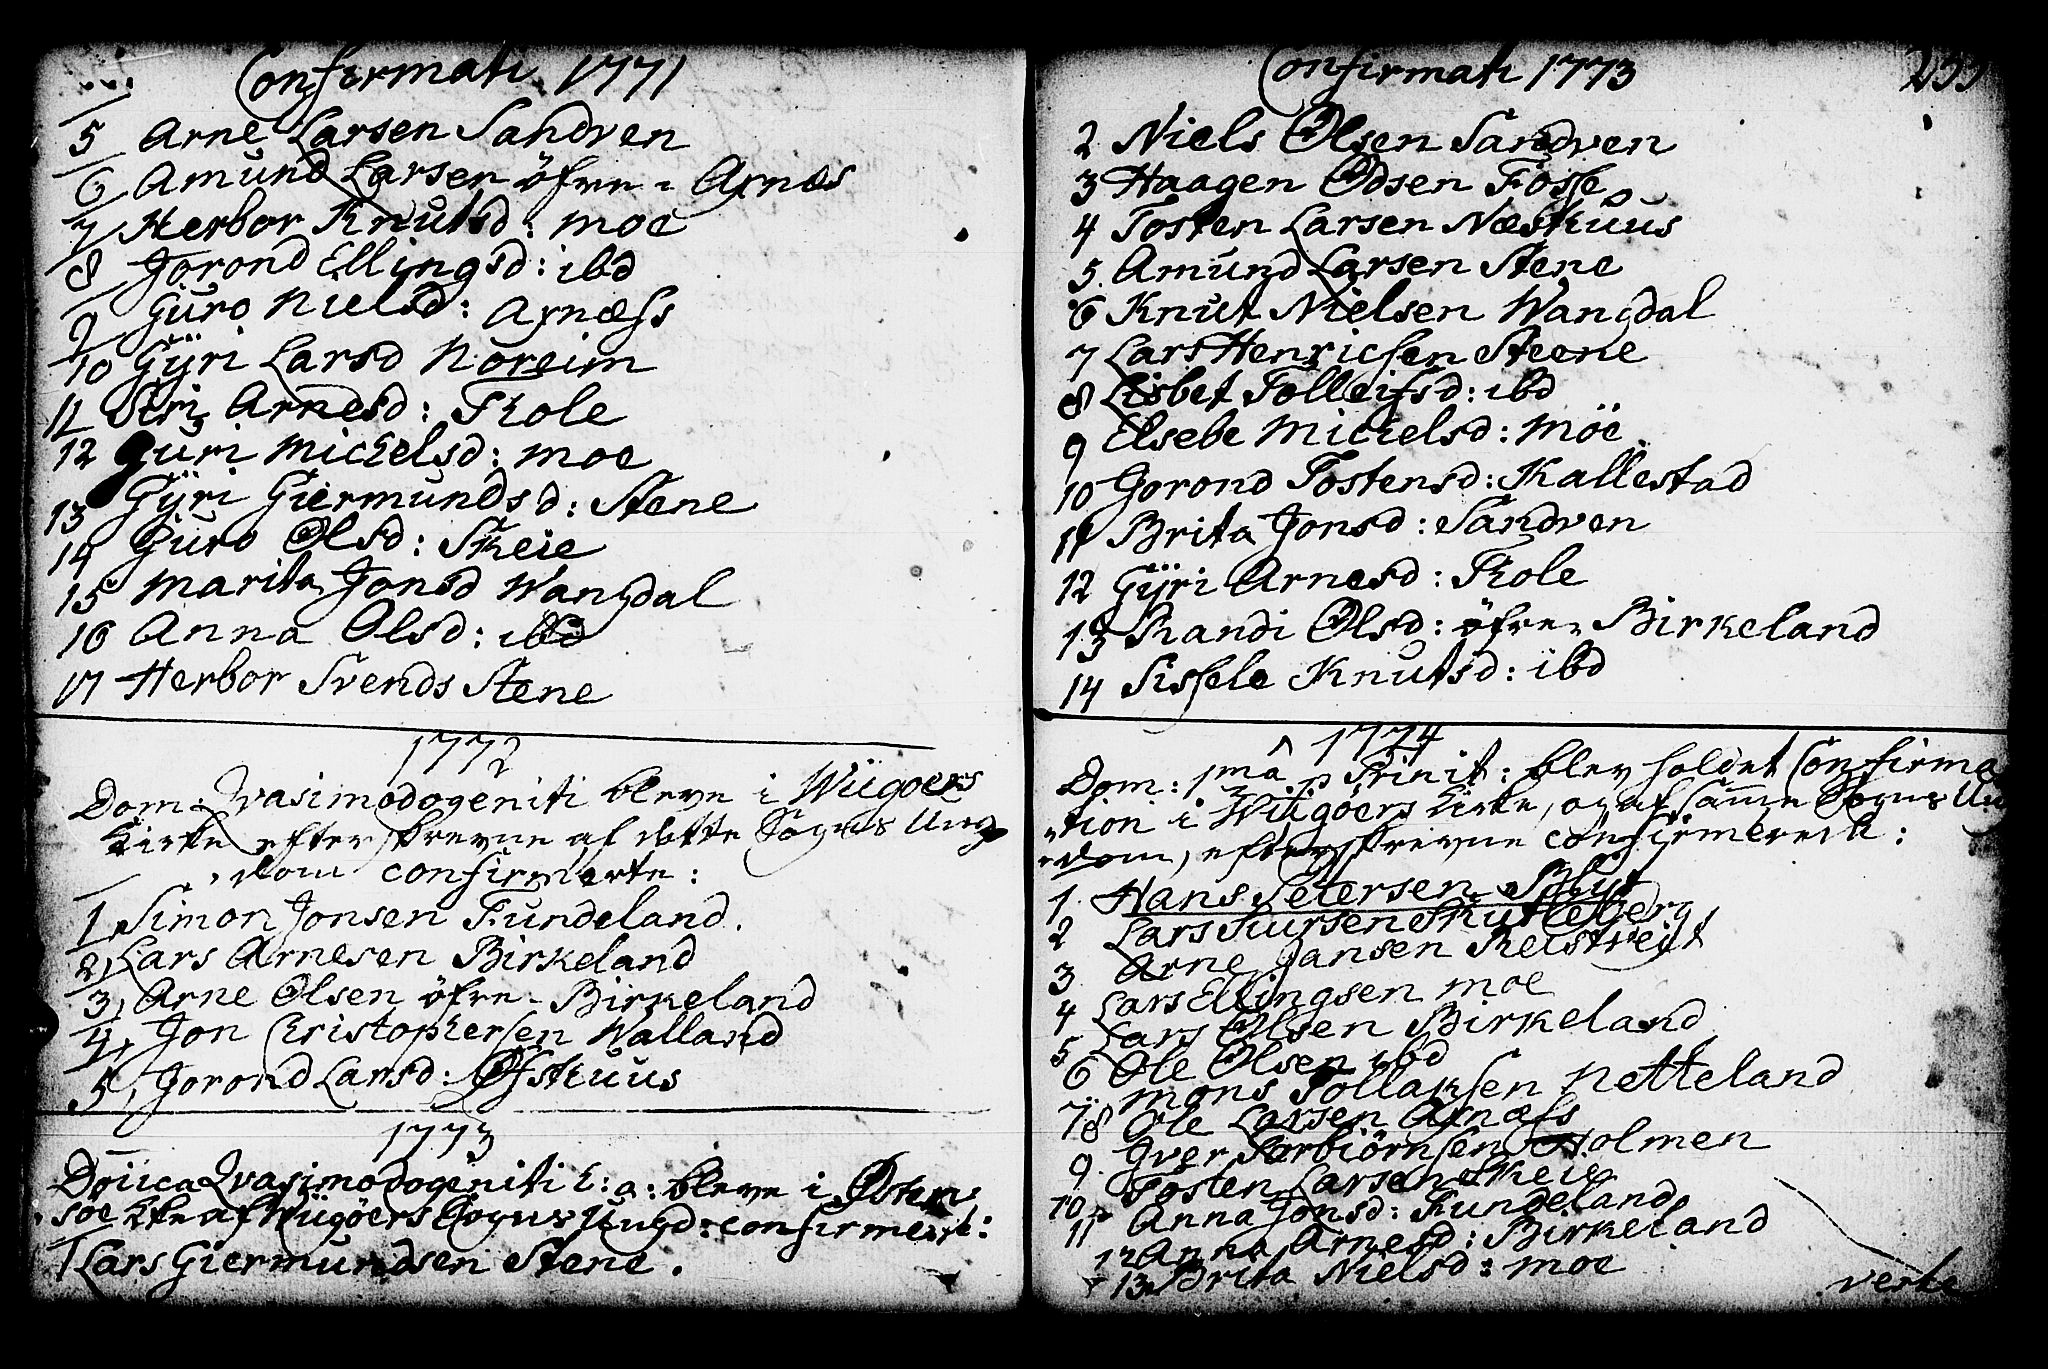 Confirmati 1771
5 Arne Larsen Sandven
6 Amund Larsen öfre - Axnæs
7 Herbor Knutsd: moe
8 Jorond Ellingsd: ibd
9 Guro Nielsd: Axnæss
10 Gÿri Larsd Noreim
11 Siri Arnesd: Skole
12 Guri Mickelsd: moe
13 Gÿri Giermundsd: Stene
14 Guro Olsd: Skeie
15 Marita Jonsd Wangdal
16 Anna Olsd: ibd
17 Herbor Svends Stene
1772
Dom: Qvasimodogeniti bleve i Wiigøers
Kirke efterskrevne af dette Sogns Ung
dom confirmerte:
1, Simon Jonsen Fundeland.
2, Lars Arnesen Birkeland
3, Arne Olsen öfre - Birkeland
4, Jon Christophersen Walland
5, Gorond Larsd: Øfsthuus
1773
Doiica Qvasimodogeniti h: a: bleve i Østen
söe Kke af Wiigøers Sogns Ungd: confirmert:
1 Lars Giermundsen Stene.
Confirmati 1773
2 Niels Olsen Sandven
3 Haagen Odsen Fosse
4 Tosten Larsen Næsthuus
5. Amund Larsen Stene
6 Knut Nielsen Wangdal
7 Lars Henricsen Steene
8 Lisbet Tolleifsd: ibd
9 Elsebe Mickelsd: Möe
10 Gorond Tostensd: Kallestad
11 Brita Jonsd: Sandven
12 Gÿri Arnesd: Skole
13 Randi Olsd: öfre - Birkeland
14 Sissele Knutsd: ibd
1774
Dom: 1ma p Trinit: blev holdet Confirma
tion i Wiigöers Kirke, og af samme Sogns Un
dom, efterskrevne confirmerede:
1. Hans Petersen Blÿt
2 Lars Siursen Skutleberg
3 Arne Jansen Reistveit
4 Lars Ellingsen moe
5 Lars Olsen Birkeland
6 Ole Olsen ibd
7 Mons Tollaksen Netteland
8 Ole Larsen Axnæss
9. Iver Torbiörnsen Holmen
10 Tosten Larsen Skeie
11 Anna Jonsd: Fundeland
12 Anna Arnesd: Birkeland
13 Brita Nielsd: moe
verte